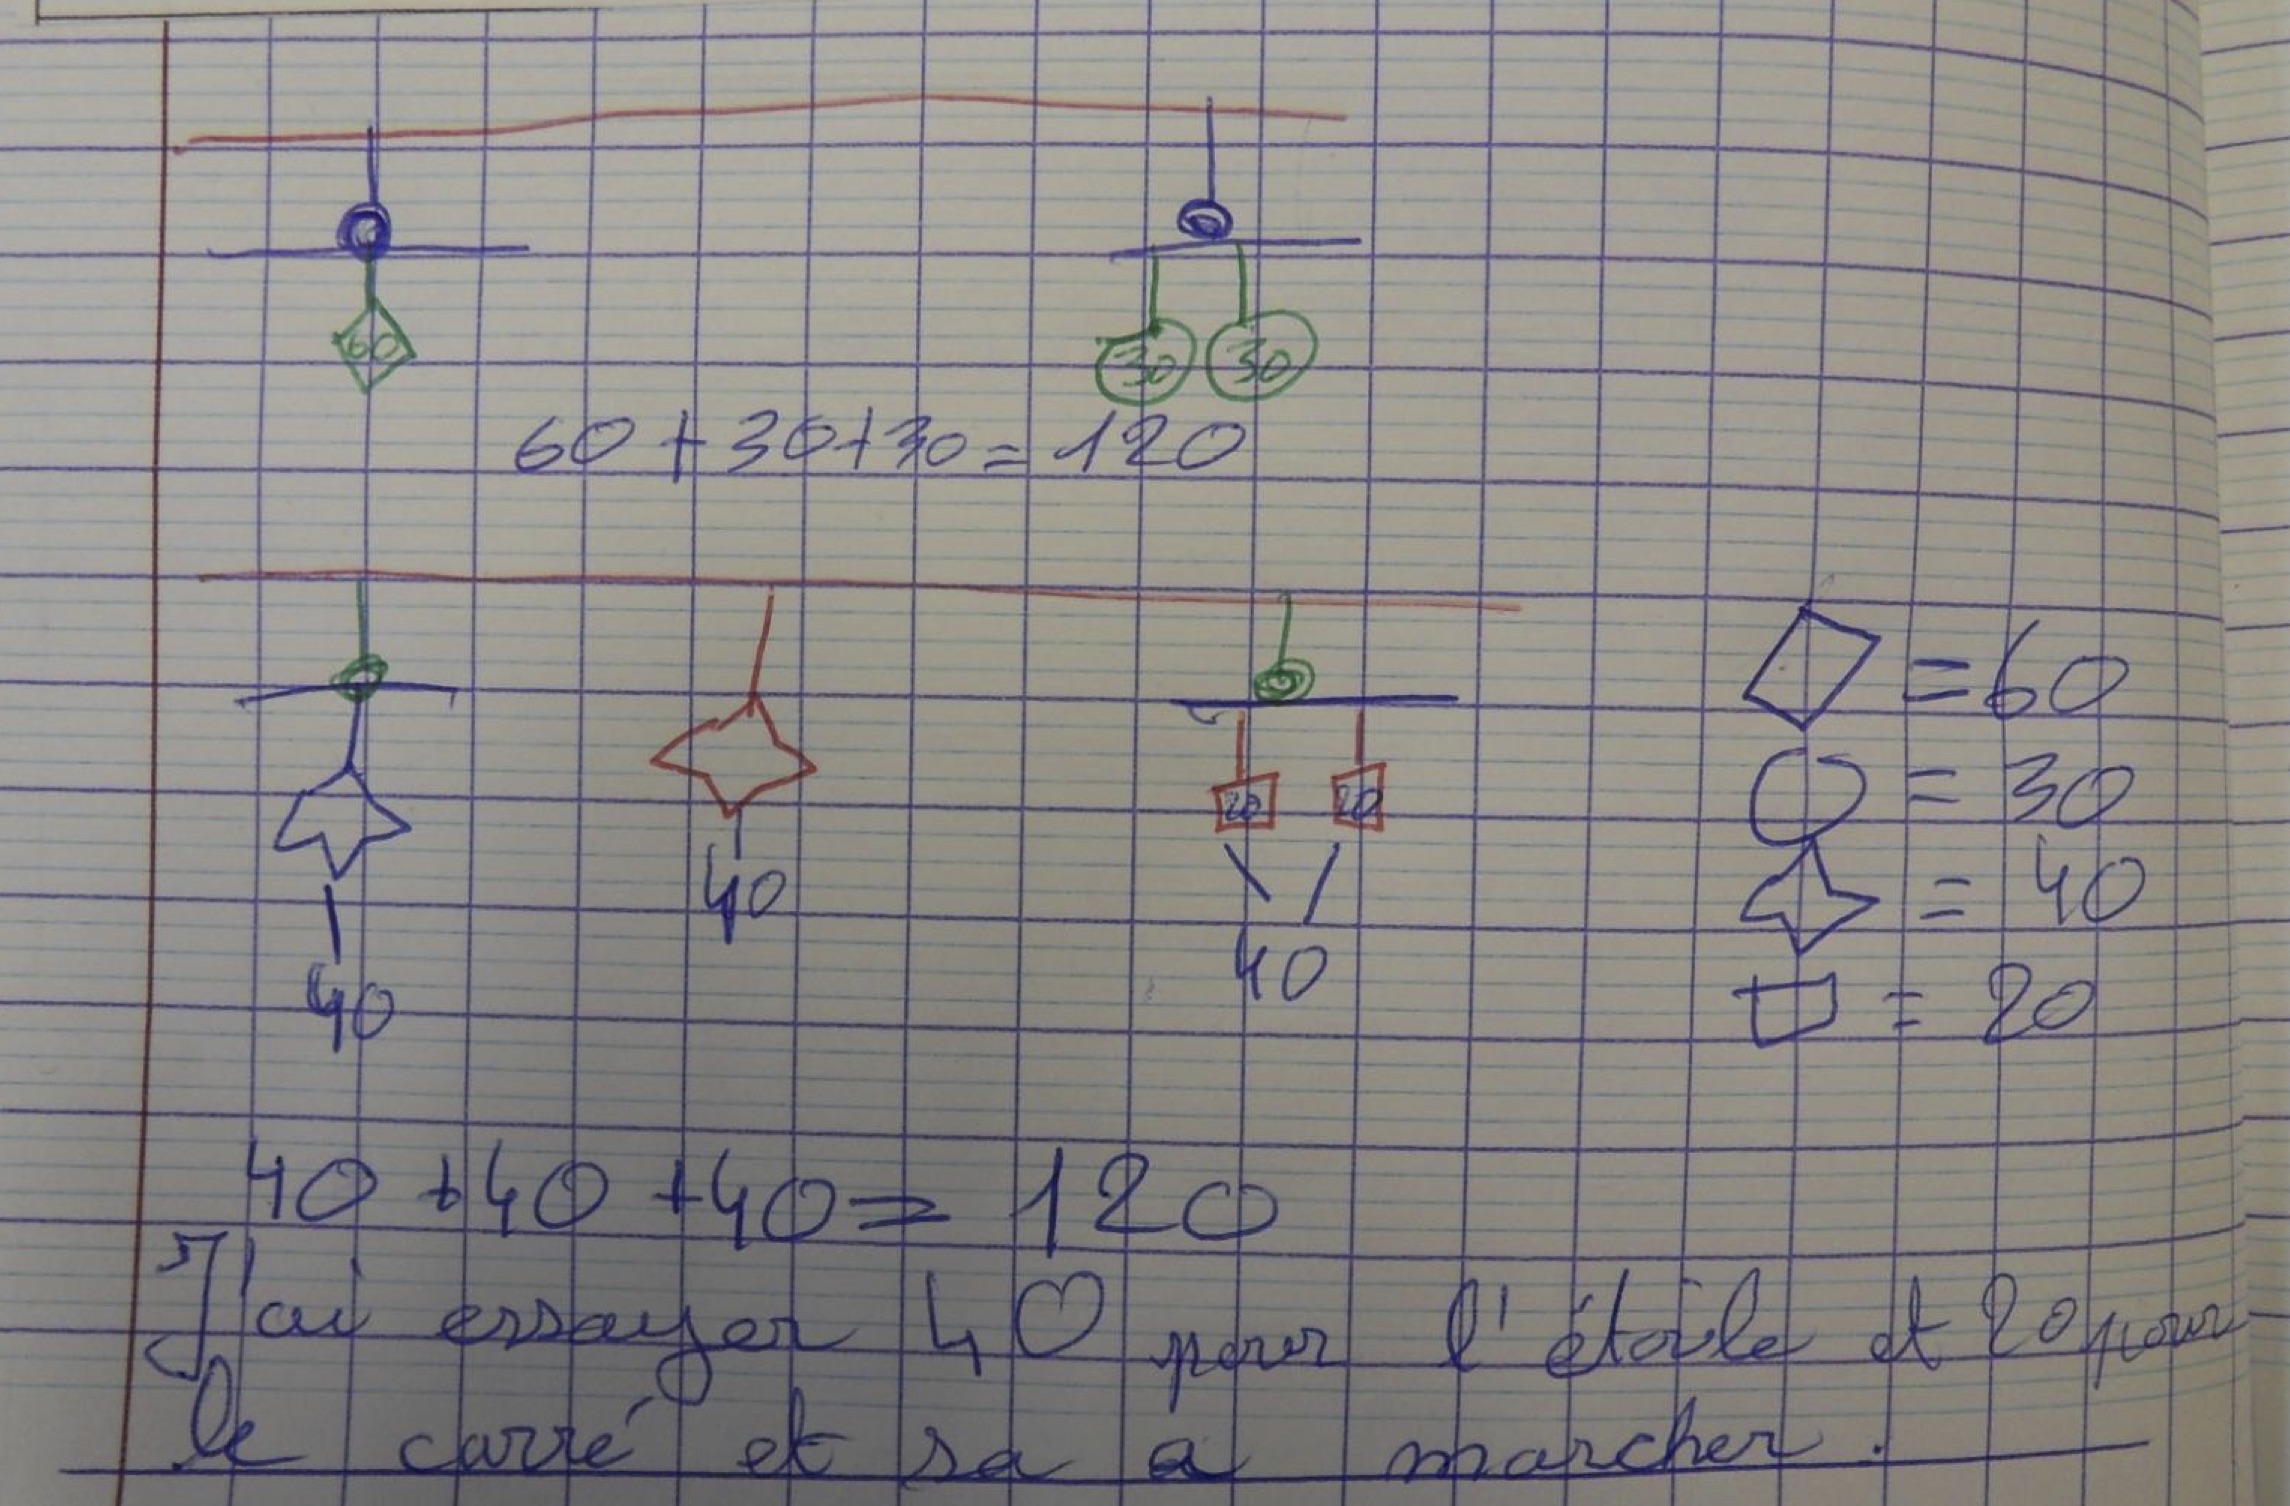 60
30 30
60 + 30 + 30 = 120
= 60
20 20
= 30
40
= 40
40
40
= 20
40 + 40 + 40 = 120
J'ai essayer 40 pour l'étoile et 20 pour
le carré et sa a marcher.